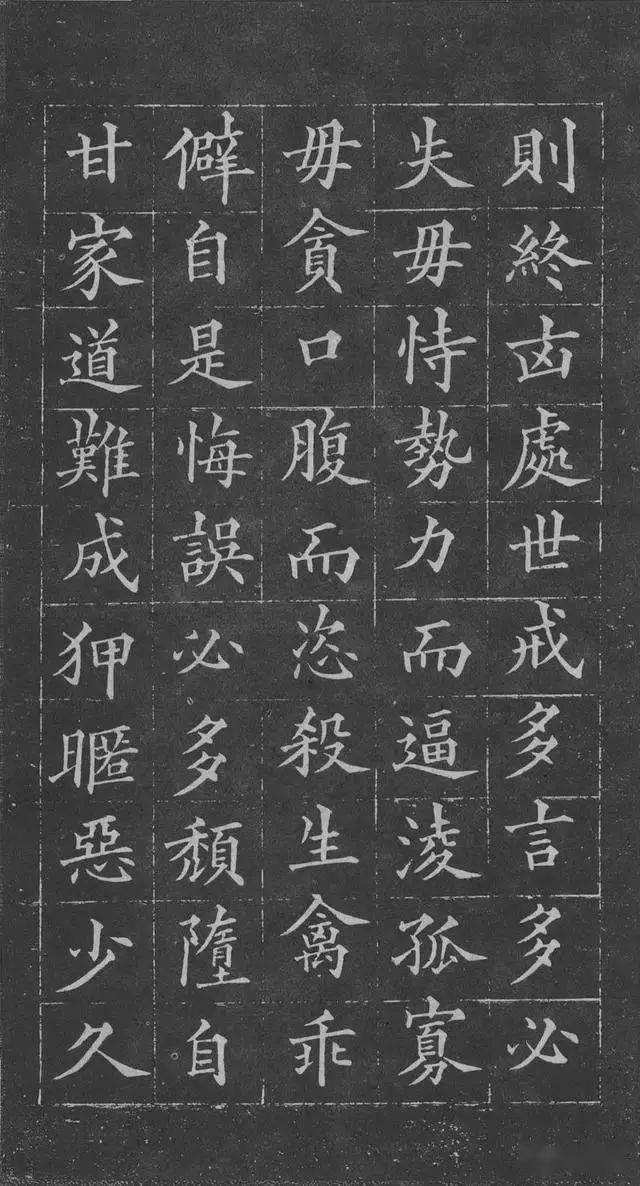 則終㐫處世戒多言多必
失毋恃勢力而逼淩孤寡
毋貪口腹而恣殺生禽乖
僻自是悔誤必多頽墮自
甘家道難成狎暱惡少久